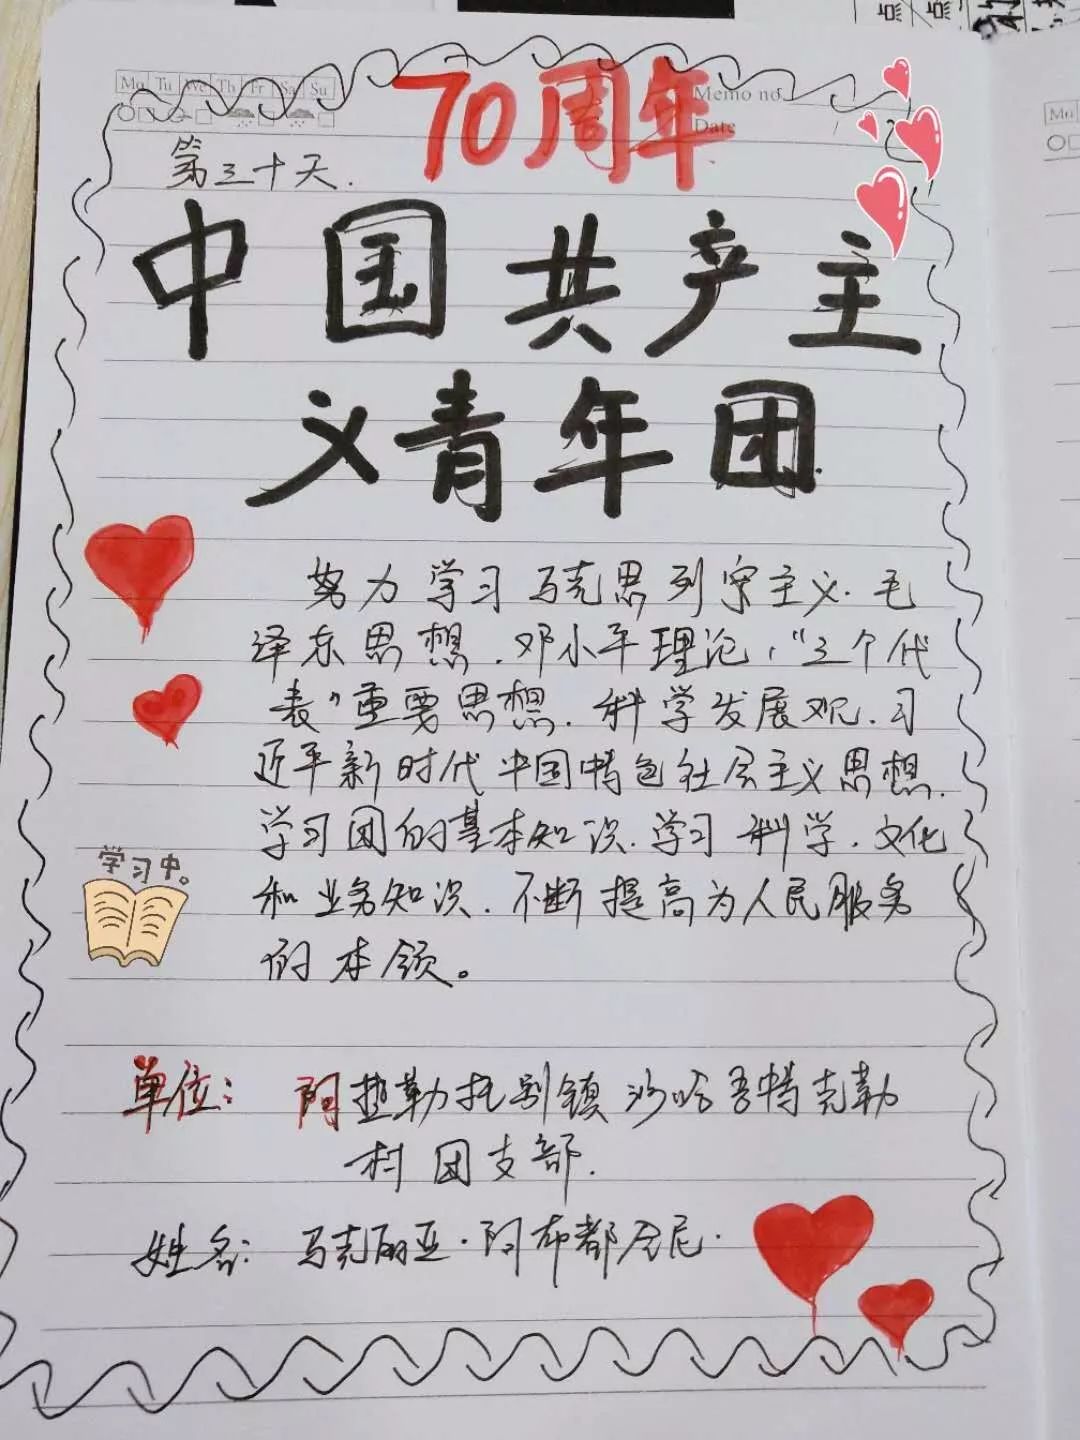 Mo Tu We Th Fr Sa Su
Memo no.
Date
70周年
第三十天.
中国共产主
义青年团
努力学习马克思列宁主义.毛
泽东思想.邓小平理论,"三个代
表"重要思想.科学发展观.习
近平新时代中国特色社会主义思想.
学习团的基本知识.学习科学.文化
和业务知识.不断提高为人民服务
的本领。
学习中。
单位:阿热勒托别镇沙哈吾特克勒
村团支部.
姓名:马克丽亚·阿布都尼.
Mo
点
点